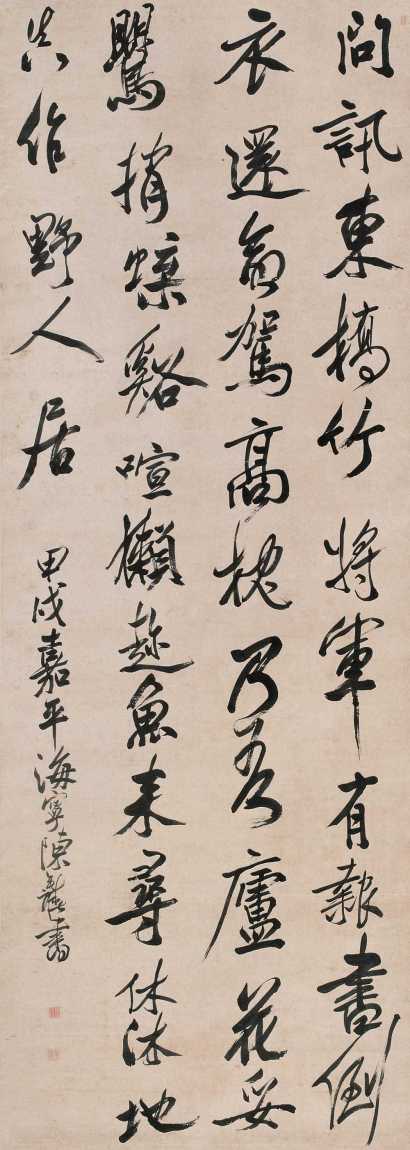 問訊東橋竹將軍有報書倒
衣還命駕高枕乃吾廬花妥
鸎捎蝶谿喧獺趁魚来尋休沐地
真作野人居
甲戌嘉平海寧陳奕禧書